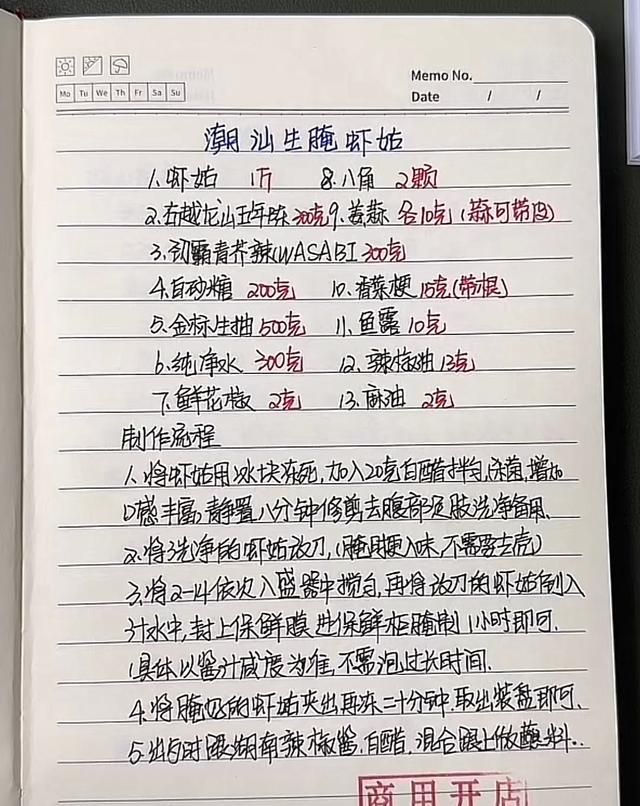 Memo No.
Mo Tu We Th Fr Sa Su
Date / /
潮汕生腌虾姑
1、虾姑 1斤 8.八角 2颗
2.古越龙山五年陈 300克 9、姜蒜 各10克（蒜可带皮）
3、劲霸青芥辣WASABI 300克
4、白砂糖 200克 10、香菜梗 15克(带根)
5、金标生抽 500克 11、鱼露 10克
6、纯净水 300克 12、辣椒油 13克
7、鲜花椒 2克 13、麻油 2克
制作流程
1、将虾姑用冰块冻死，加入20克白醋拌匀，杀菌，增加
口感丰富，静置八分钟修剪去腹部足肢洗净备用、
2、将洗净的虾姑改刀，(腌制更入味，不需要去壳)
3、将2-14依次入盛器中搅匀，再将改刀的虾姑倒入
汁水中，封上保鲜膜进保鲜柜腌制1小时即可、
(具体以酱汁咸度为准，不需泡过长时间、
4、将腌好的虾姑夹出再冻二十分钟，取出装盘即可、
5、出品时跟湖南辣椒酱，白醋，混合跟上做蘸料..
商用开店